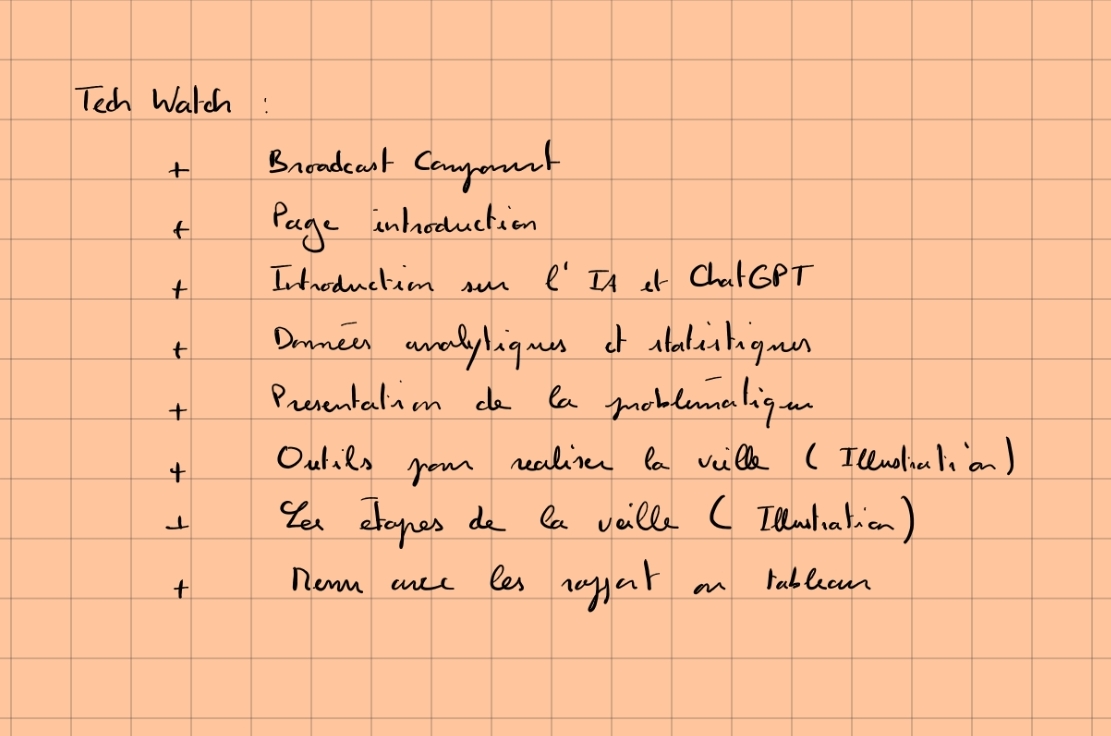 Tech Watch :
+ Broadcast Component
+ Page introduction
+ Introduction sur l'IA et ChatGPT
+ Données analytiques et statistiques
+ Presentation de la problématique
+ Outils pour realiser la veille (Illustration)
+ Les étapes de la veille (Illustration)
+ Menu avec les rapport en tableau